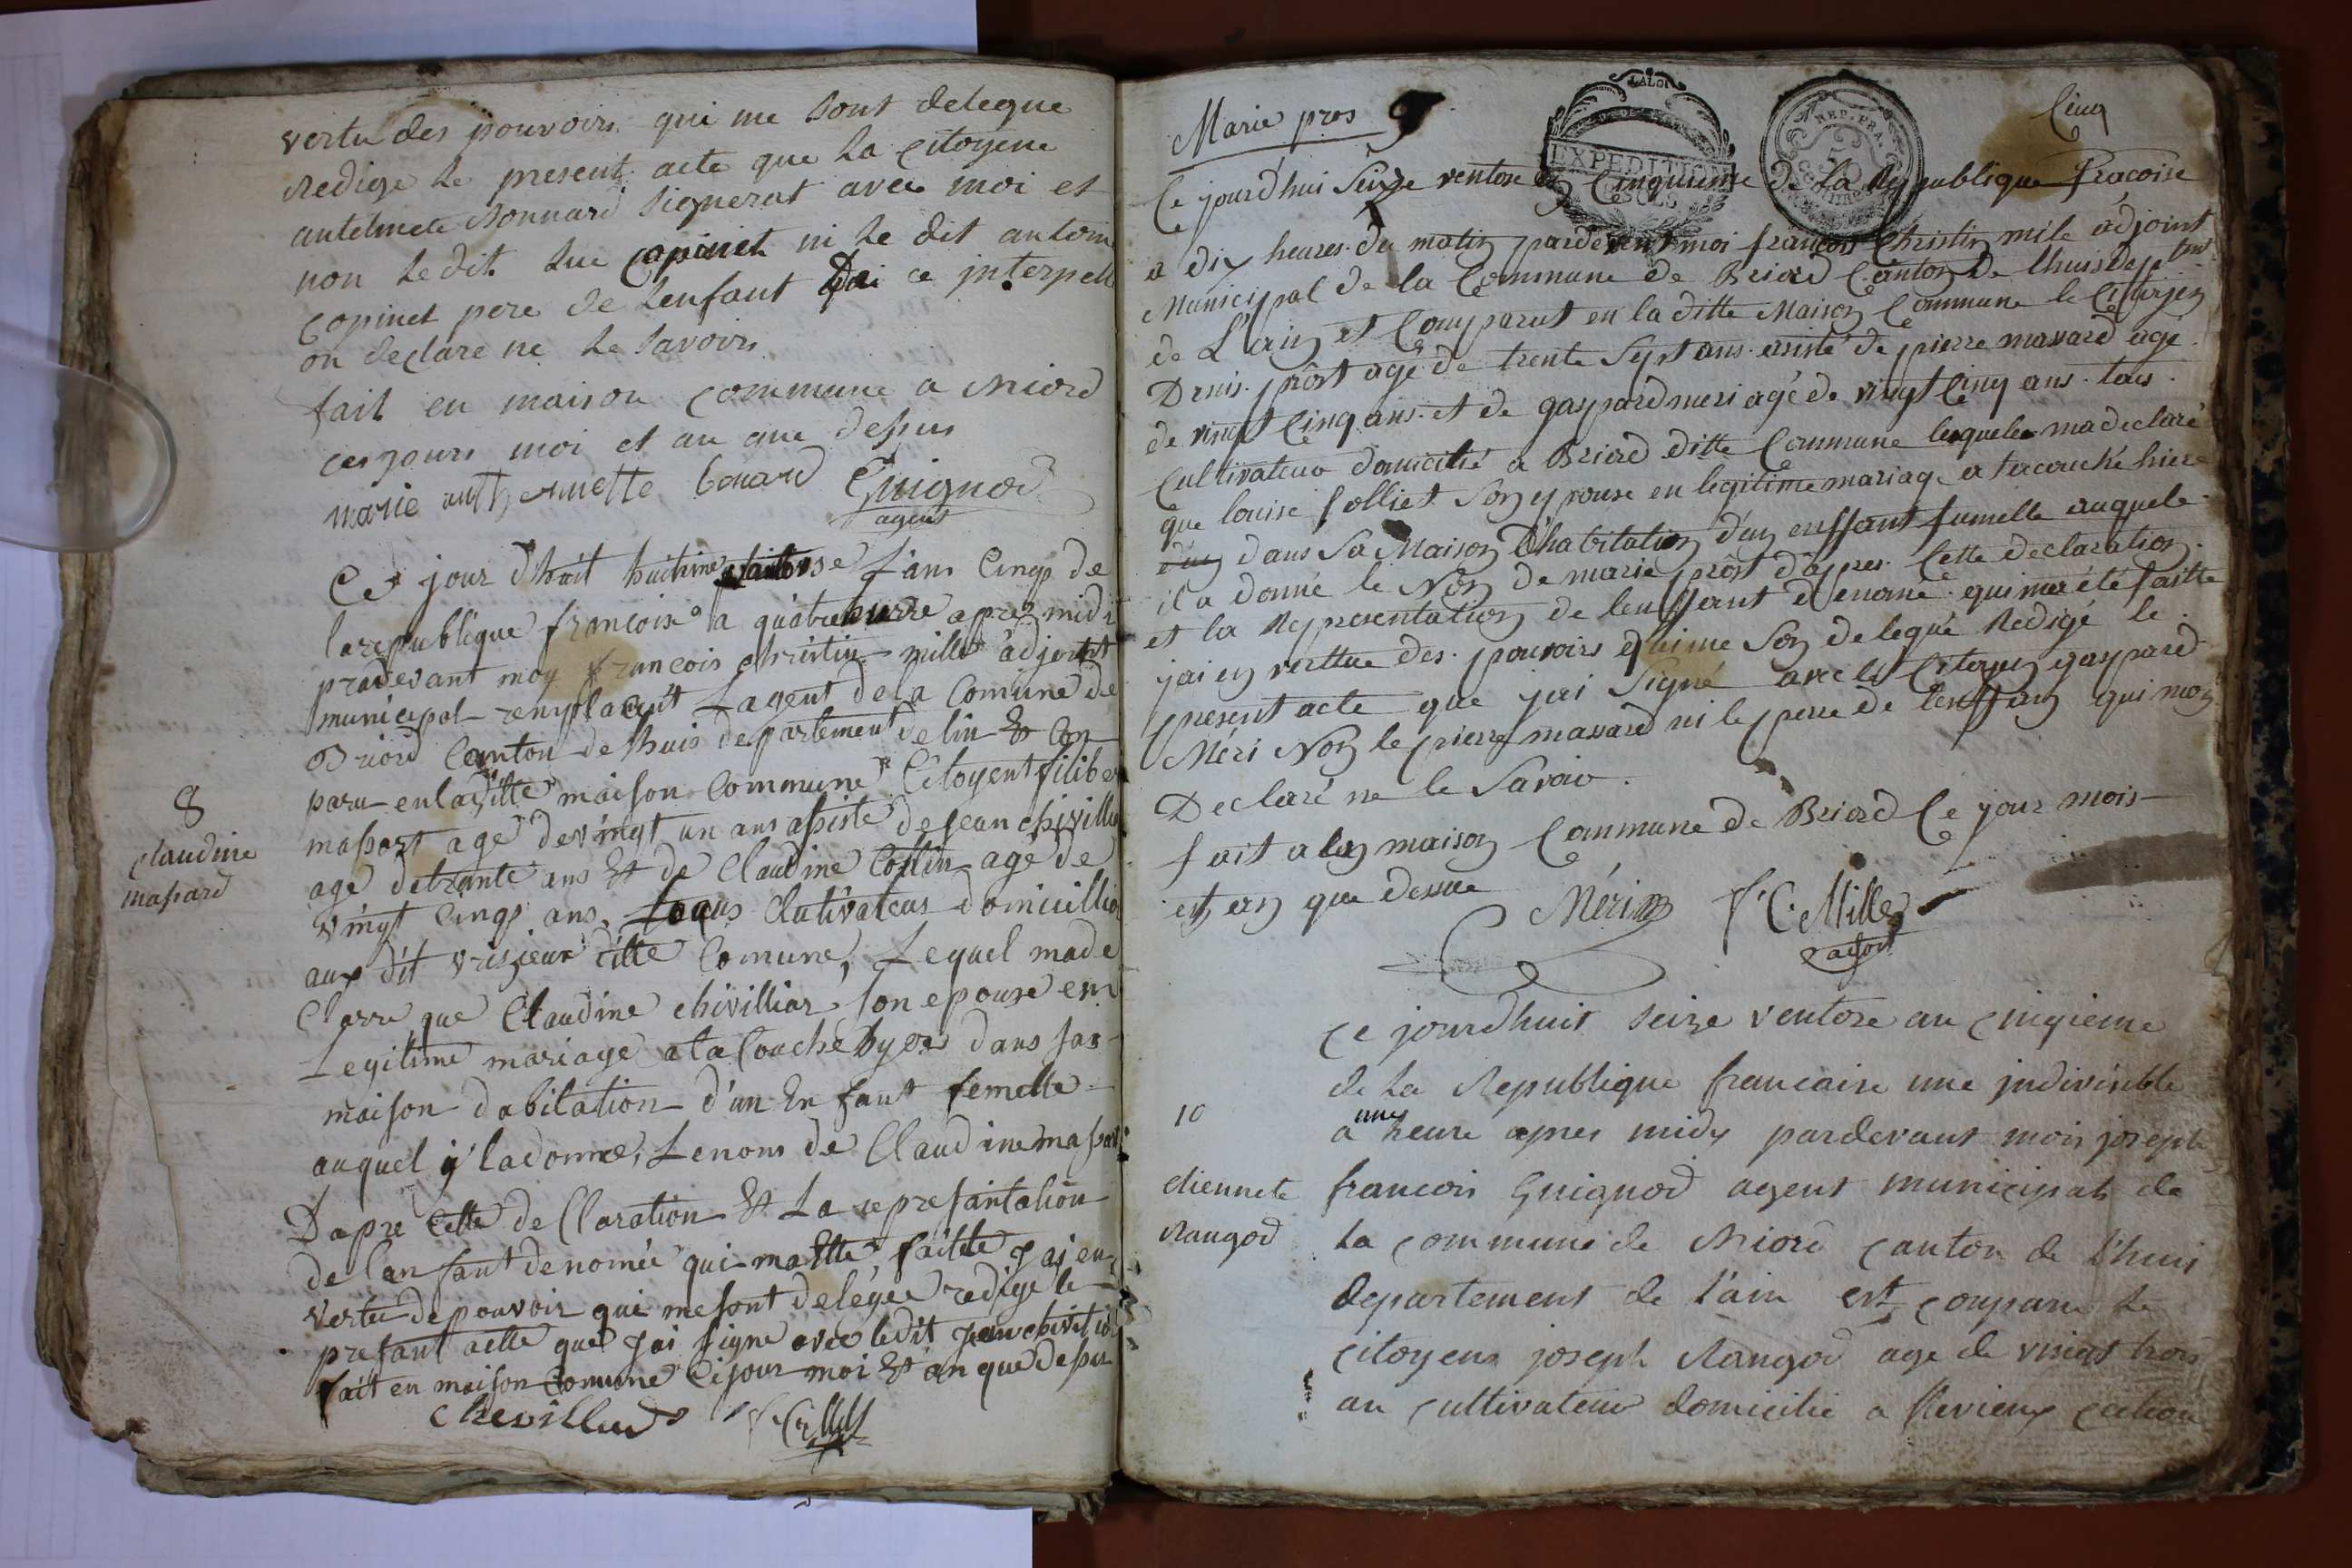 vertu des pouvoirs qui me sont delegue
redige le present acte que la citoyene
antelmete Bonnard signerat avec moi et
non ledit luc copinet ni le dit antoin
copinet pere de lenfant de ce jnterpell
on declare ne le savoirs
fait en maison commune a Briord
ces jours moi et an que dessus
marie anthermette bonard Guignod
agent
Ce jour dhuit huitime vantose lans Cinqs de
larepublique francoise a quatre hurre apres midi
pradevant moy francois christin mille adjoint
municipal remplacent Lagent de la Comune de
Briord Canton de lhuis departement de lin Et Con
paru en laditte maison Commune Citoyent filiber
massart age de vingt un ans assiste de jean chivillia
8
claudine
massard
age de trante ans Et de Claudine Collin age de
vingt Cinqs ans, tous Clutivateus domicillie
aux dit vrisieux ditte Comune, Lequel made
Clarre que Claudine chivilliar son epouse en
Legitime mariage ata Couche hyere dans sas
maison dabitation d'un En fant femelle
auquel y ladonne, Lenons de Claudine massar
Dapre Cette de Claration Et La represantation
de lan fant denomée qui ma Ette faitte Jai en
vertu de pouvoir qui me sont delégée redige le
presant acte que Jai signe avec ledit Jean chivillia
fait en maison Comune Ci jour moi Et an que dessus
chevilliard F C Mille
Marie pros 9
Cinq
LA LOI
EXPEDITION
REP. FRA.
Ce jourdhui Seize ventose Cinquieme de La Republique fracoise
a dix heures du matin pardevent moi francois Christin mile adjoint
Municipal de la Commune de Briord Canton de lhuis deptmt
de L'ain et Comparut en la ditte Maison Commune le Citoyen
Denis prost agé de trente Sept ans assisté de pierre massard agé
de vingt Cinq ans et de gaspard meri agé de vingt Cinq ans tous
Cultivateur domicilié a Briord ditte Commune lesqueles ma declaré
que louise folliet Son epouse en legitime mariage at acouché hiere
dans Sa Maison d'habitation d'un enffant fumelle auquele
il a donné le Non de marie prost d'apres Cette declaration
et la Representation de lenffant denomé qui ma été faitte
jai en verttue des pouvoirs qui me Son delegué Redigé le
present acte que jai Signé avec le Citoyen gaspard
Méri Non le pierre massard ni le pere de lenffan qui mon
Declaré ne le Savoir
fait a la maison Commune de Briord Ce jour mois
et an que dessue Mérin F C Mille
adjoint
ce jourdhuit seize ventose an cinqieme
de la Republique francaise une jndivisible
a une heure apres midy pardevant mois joseph
10
etiennete
Rangod
francois Guignod agent municipals de
la commune de Briord canton de l'huis
departement de l'ain est conparu le
citoyens joseph Rangod age de vingt trois
an cultivateur domicilie a Verieux